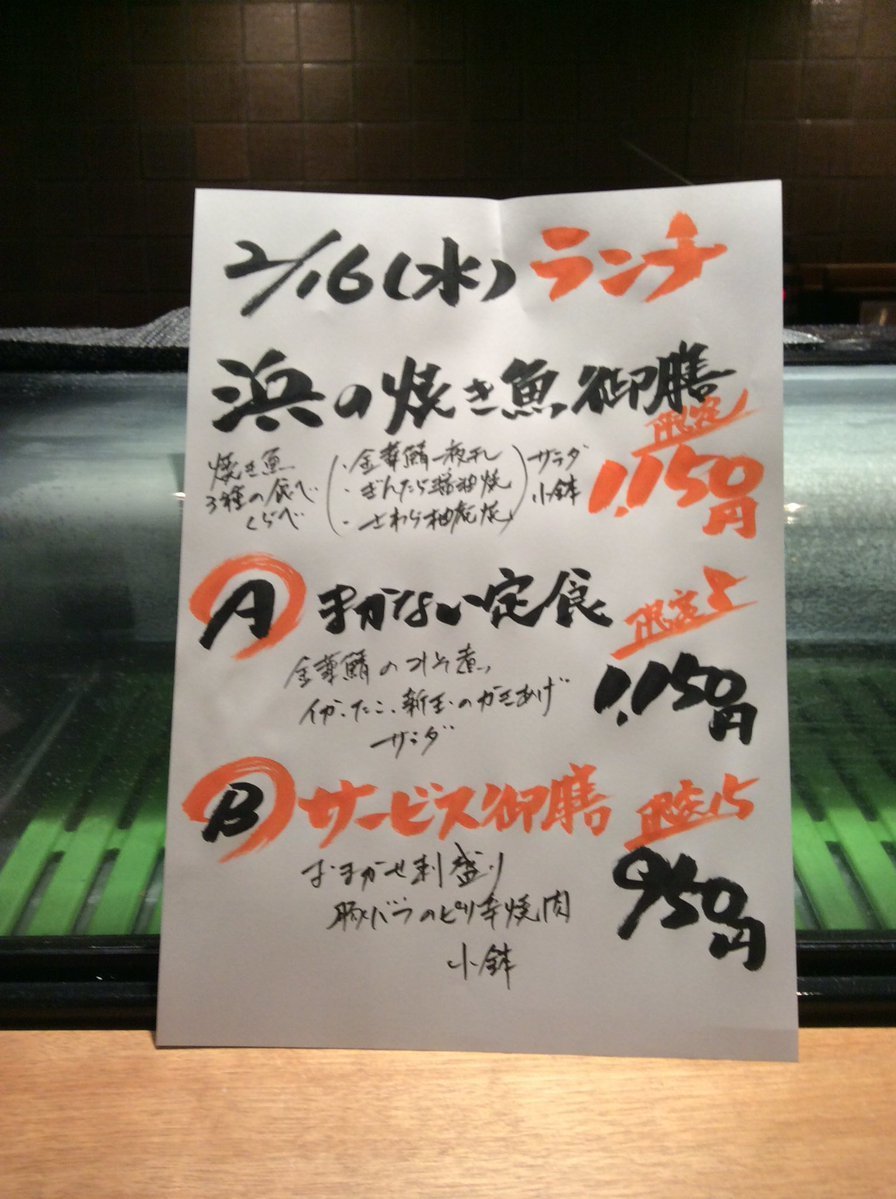 2/16(水)ランチ
浜の焼き魚御膳
限定
焼き魚
3種の食べ
くらべ
・金華鯖一夜干
・ぎんたら醤油焼
・さわら柚庵焼
サラダ
小鉢
1,150円
A まかない定食
限定5
金華鯖のみそ煮、
イカ、たこ、新玉のかきあげ
サラダ
1,150円
B サービス御膳
限定15
おまかせ刺盛り
豚バラのピリ辛焼肉
小鉢
950円